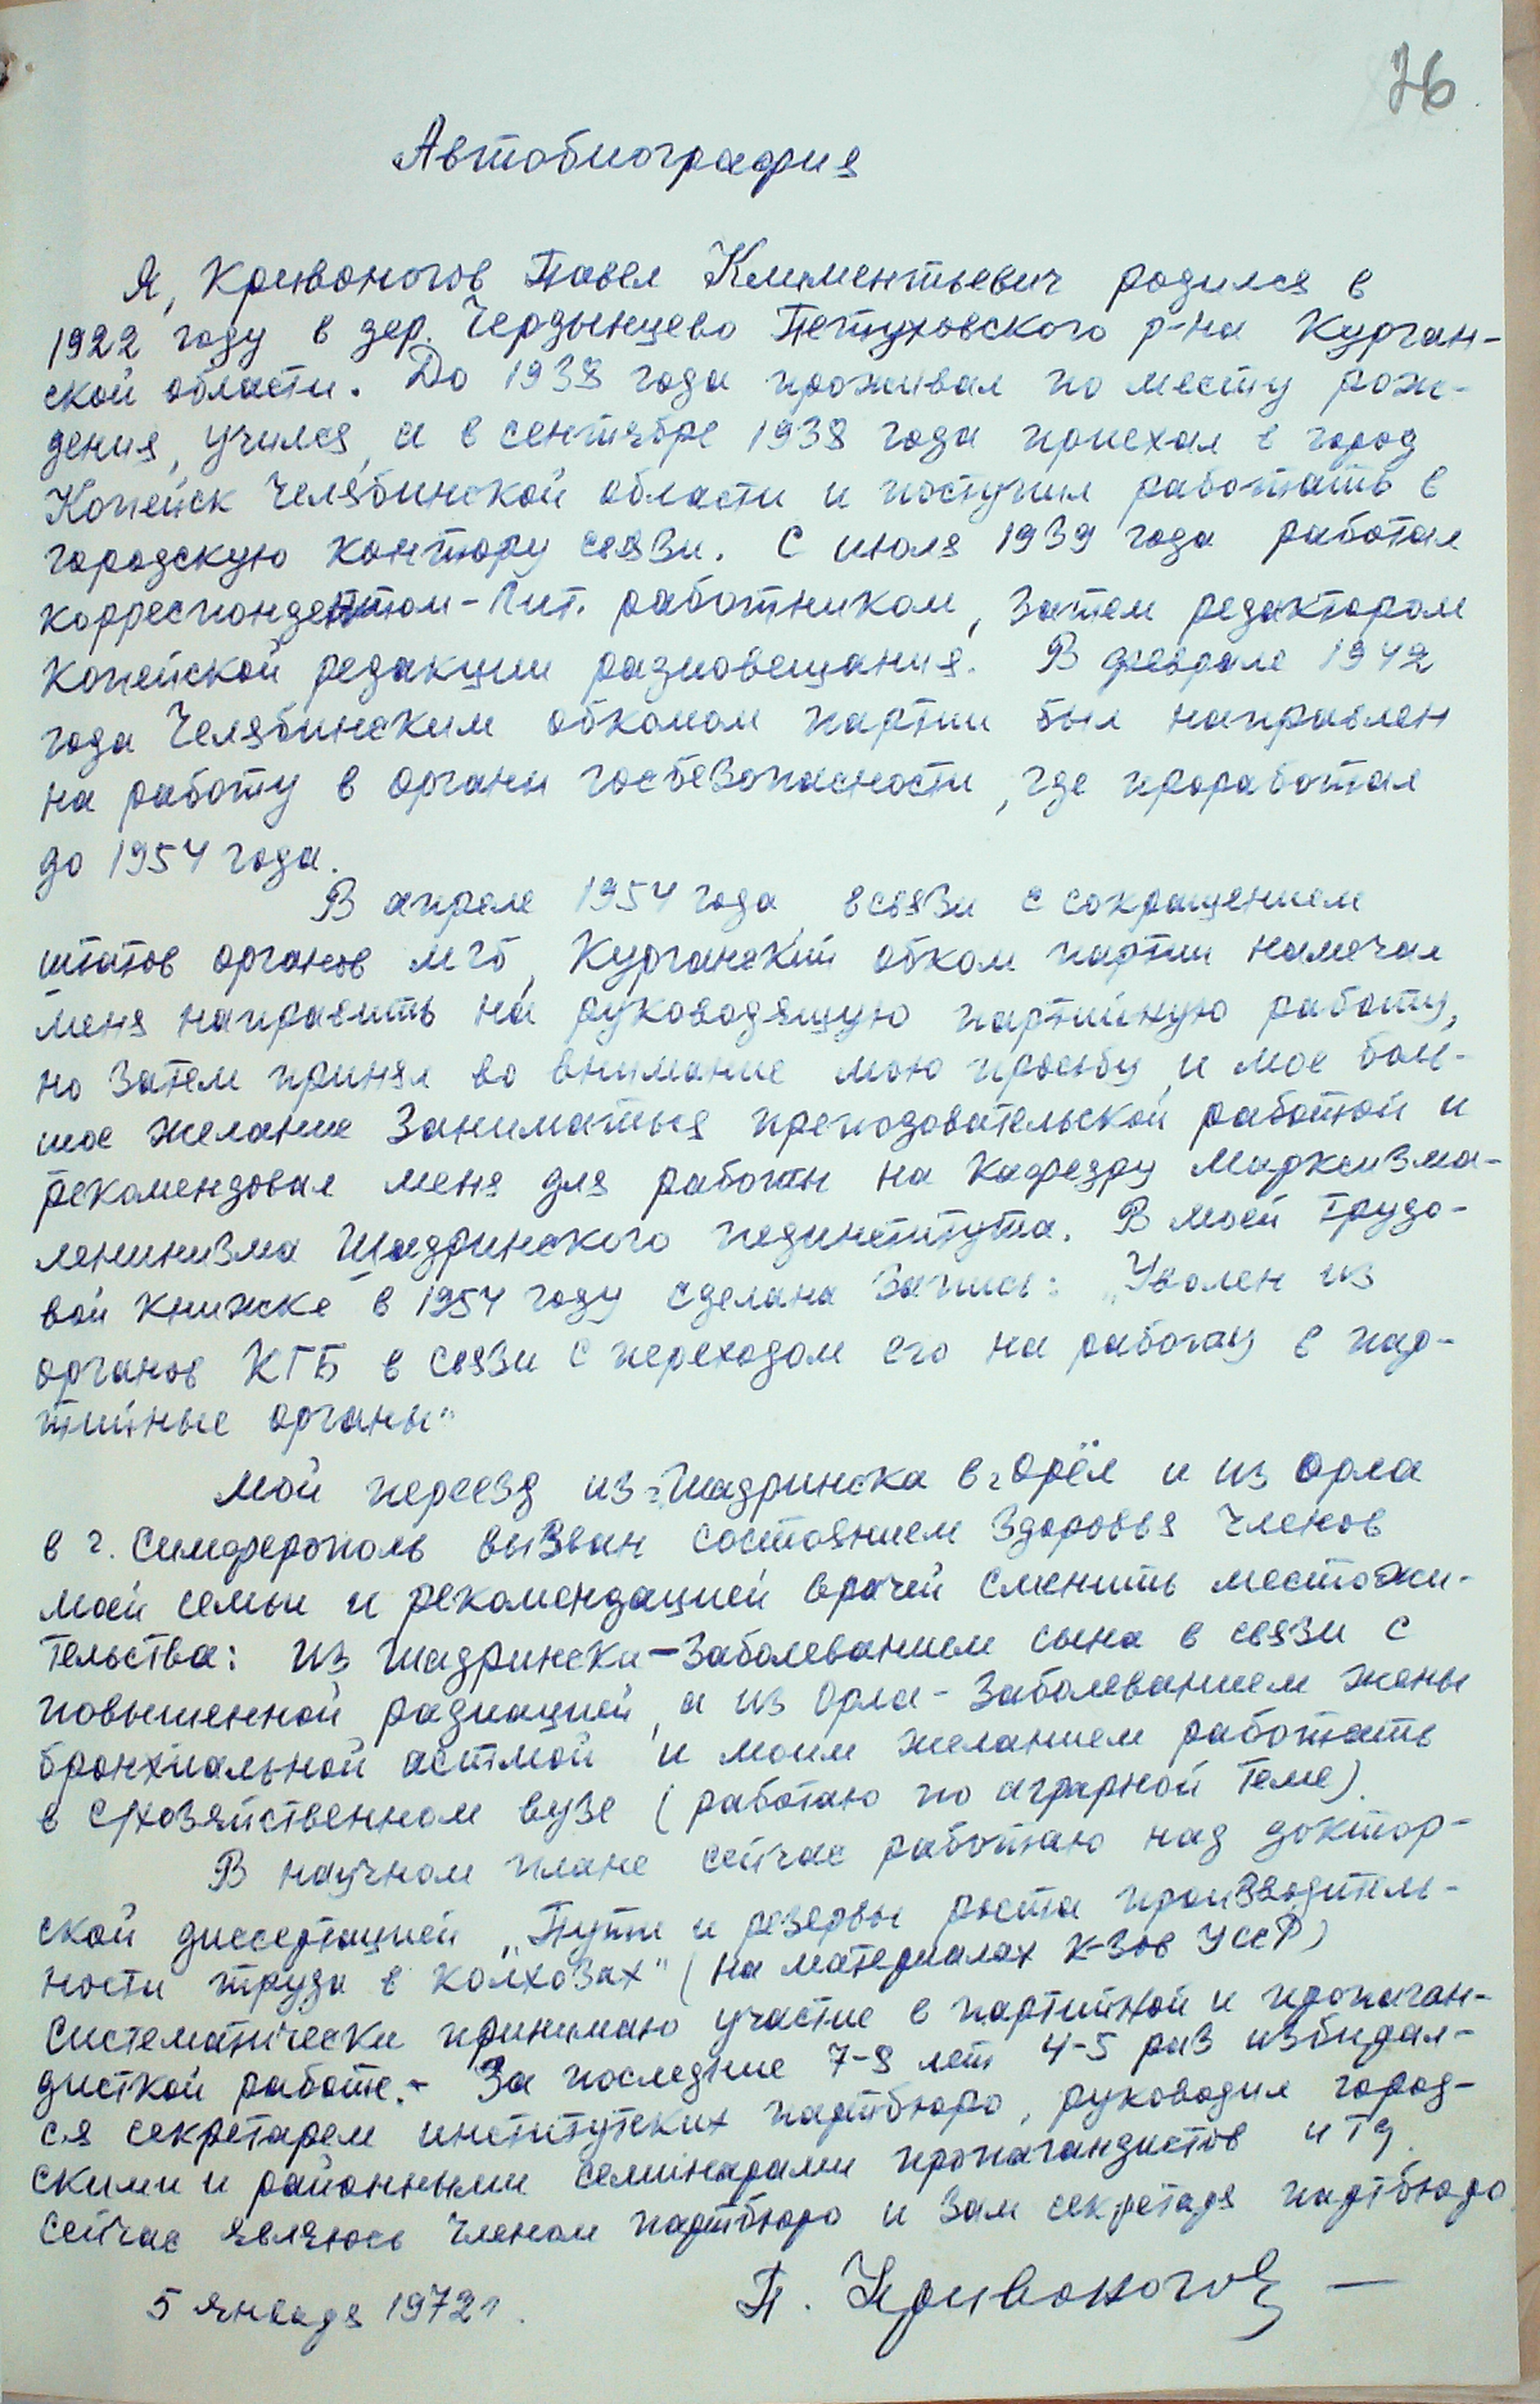 76
Автобиография
Я, Кривоногов Павел Климентьевич родился в
1922 году в дер. Чердынцево Петуховского р-на Курган-
ской области. До 1938 года проживал по месту рож-
дения, учился, а в сентябре 1938 года приехал в город
Копейск Челябинской области и поступил работать в
городскую контору связи. С июля 1939 года работал
корреспондентом-лит. работником, затем редактором
Копейской редакции радиовещания. В феврале 1942
года Челябинским обкомом партии был направлен
на работу в органы госбезопасности, где проработал
до 1954 года.
В апреле 1954 года, в связи с сокращением
штатов органов МГБ, Курганский обком партии намечал
меня направить на руководящую партийную работу,
но затем принял во внимание мою просьбу и мое боль-
шое желание заниматься преподовательской работой и
рекомендовал меня для работы на кафедру Марксизма-
ленинизма Шадринского пединститута. В моей трудо-
вой книжке в 1954 году сделана запись: „Уволен из
органов КГБ в связи с переходом его на работу в пар-
тийные органы"
Мой переезд из г. Шадринска в г. Орёл и из Орла
в г. Симферополь вызван состоянием здоровья членов
моей семьи и рекомендацией врачей сменить местожи-
тельства: из Шадринска - заболеванием сына в связи с
повышенной радиацией, а из Орла - заболеванием жены
бронхиальной астмой и моим желанием работать
в с/хозяйственном вузе (работаю по аграрной теме).
В научном плане сейчас работаю над доктор-
ской диссертацией „Пути и резервы роста производитель-
ности труда в колхозах" (на материалах к-зов УССР)
Систематически принимаю участие в партийной и пропаган-
дисткой работе. - За последние 7-8 лет 4-5 раз избирал-
ся секретарем институтских партбюро, руководил город-
скими и районными семинарами пропагандистов и тд.
Сейчас являюсь членом партбюро и зам секретаря партбюро.
5 января 1972 г. П. Кривоногов